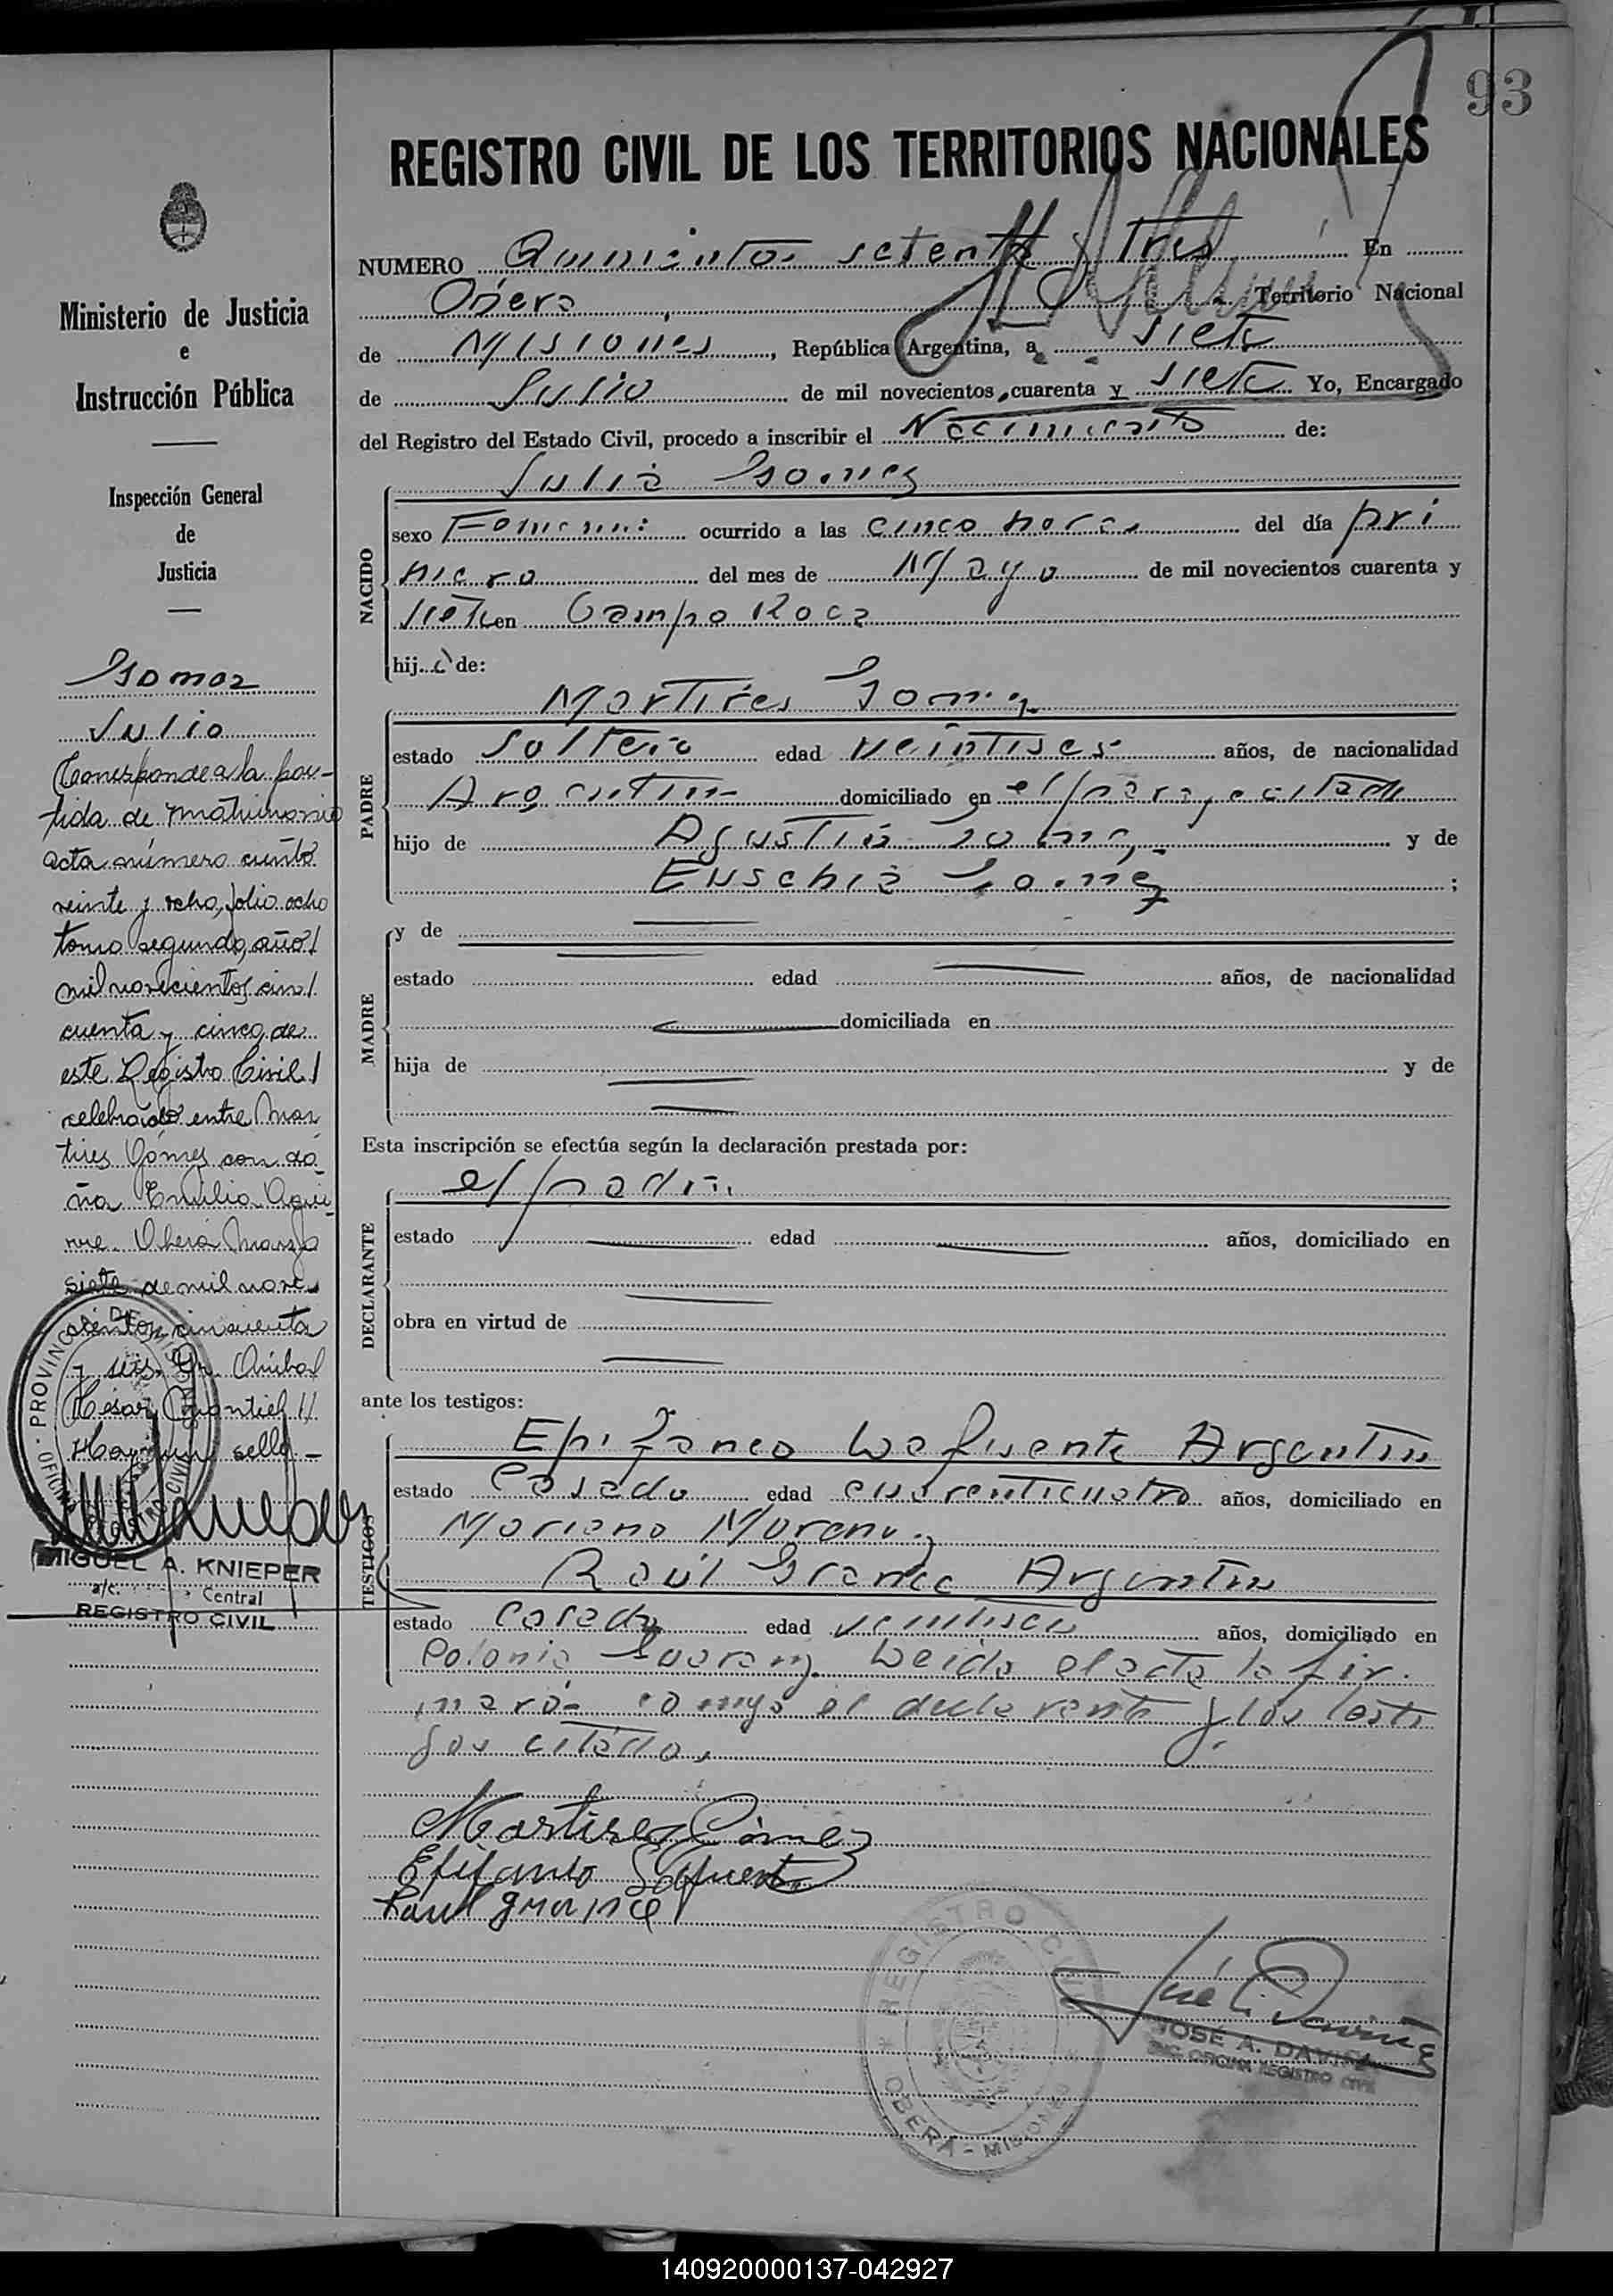 93
REGISTRO CIVIL DE LOS TERRITORIOS NACIONALES
Ministerio de Justicia
e
Instrucción Pública
Inspección General
de
Justicia
Gomez
Julia
Corresponde a la par-
tida de matrimonio
acta número ciento
veinte y ocho, folio ocho
tomo segundo, año/
mil novecientos cin/
cuenta y cinco, de
este Registro Civil/
celebrado entre Mar
tires Gómez con do-
ña Emilia Agui-
rre. Oberá Marzo
siete de mil nove-
cientos cincuenta
y seis. Anibal
César Montiel //
Hay un sello -
MIGUEL A. KNIEPER
a/c. Central
REGISTRO CIVIL
NUMERO Quinientos setenta y tres En
Obera Territorio Nacional
de Misiones, República Argentina, a siete
de Julio de mil novecientos cuarenta y siete Yo, Encargado
del Registro del Estado Civil, procedo a inscribir el Nacimiento de:
NACIDO
Julia Gomez
sexo Femenino ocurrido a las cinco horas del día pri
mero del mes de Mayo de mil novecientos cuarenta y
siete en Campo Roca
hija de:
PADRE
Martires Gomez
estado Soltero edad veintiseis años, de nacionalidad
Argentino domiciliado en el paraje citado
hijo de Agustin Gomez y de
Eusebia Gomez;
MADRE
y de
estado edad años, de nacionalidad
domiciliada en
hija de y de
Esta inscripción se efectúa según la declaración prestada por:
DECLARANTE
el padre
estado edad años, domiciliado en
obra en virtud de
ante los testigos:
TESTIGOS
Epifaneo Lafuente Argentino
estado Casado edad cuarenticuatro años, domiciliado en
Mariano Moreno y
Raúl Grance Argentino
estado casado edad veintiseis años, domiciliado en
Colonia Guarany. Leida el acta la fir-
maron conmigo el declarante y los testi
gos citados
Martires Gómez
Epifanio Lafuente
Raul Grance
REGISTRO CIVIL
OBERÁ - MISIONES
JOSÉ A. DAVIÑA
ENC. OFICINA REGISTRO CIVIL
140920000137-042927